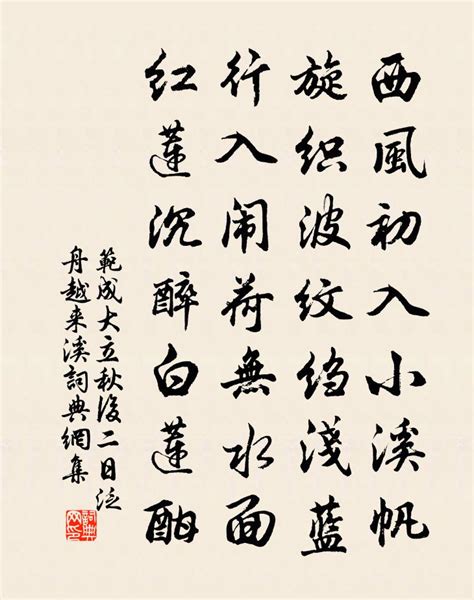 西風初入小溪帆
旋织波纹绉淺藍
行入闹荷無水面
红蓮沉醉白蓮酣
範成大立秋後二日泛
舟越来溪詞典網集